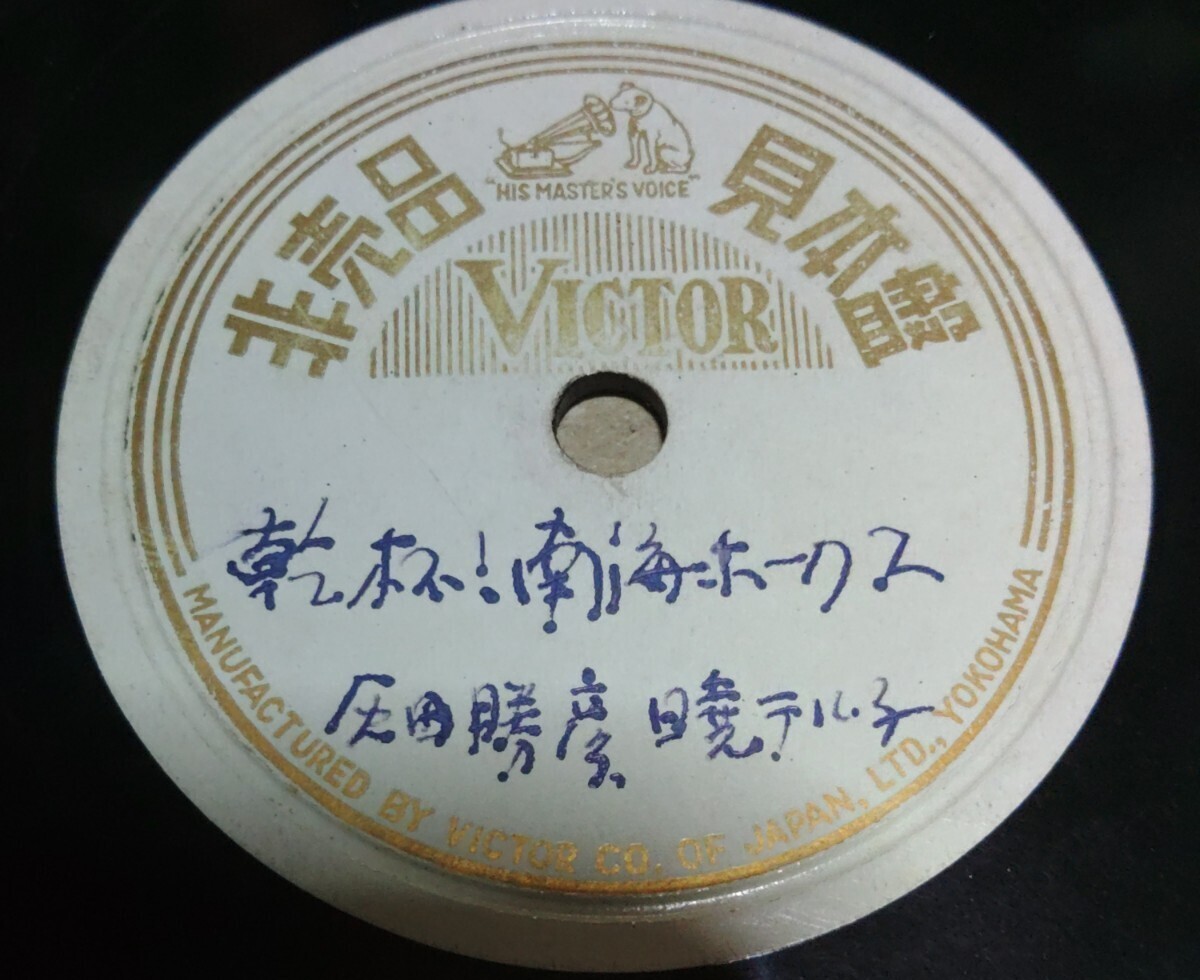 非売品 見本盤
"HIS MASTER'S VOICE"
VICTOR
乾杯!南海ホークス
灰田勝彦 暁テル子
MANUFACTURED BY VICTOR CO. OF JAPAN, LTD., YOKOHAMA